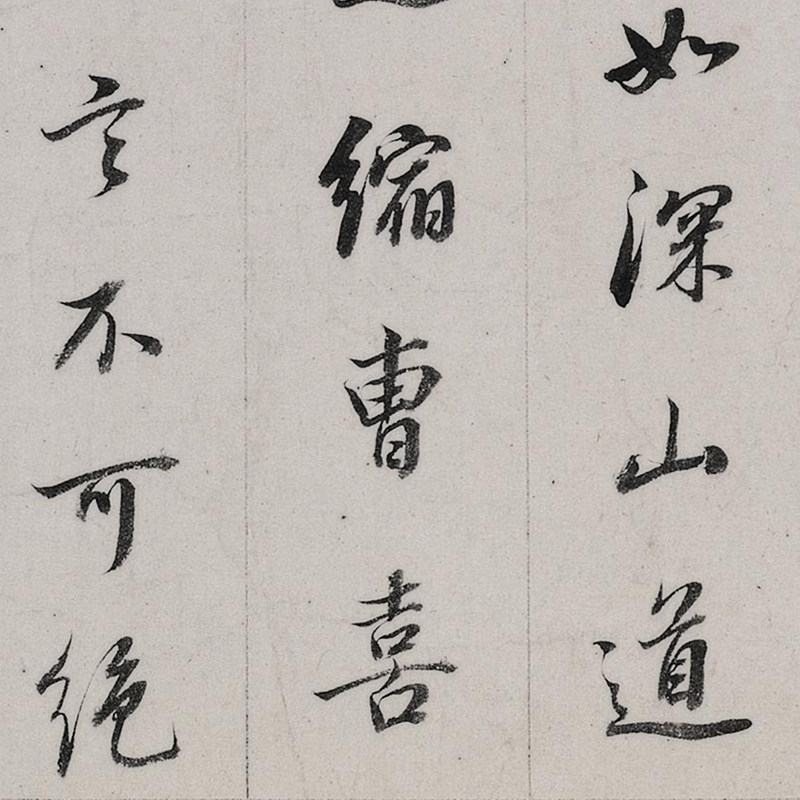 如深山道
缩曹喜
言不可絶